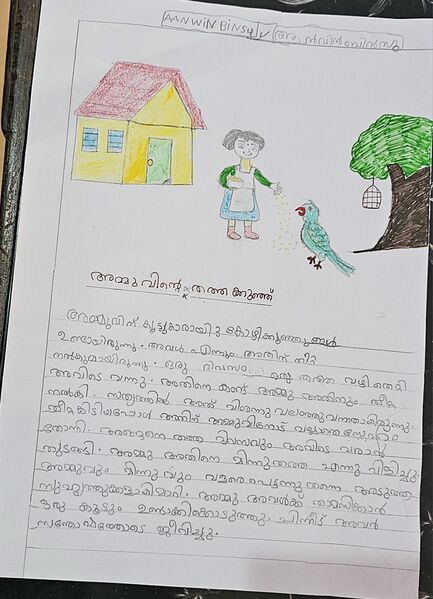 AANWIN BINSU ആൻവിൻ ബിൻസു
അമ്മുവിന്റെ തത്തക്കുഞ്ഞ്
അമ്മുവിന് കൂട്ടുകാരായി 2 കോഴിക്കുഞ്ഞുങ്ങൾ
ഉണ്ടായിരുന്നു. അവൾ എന്നും അതിന് തീറ്റ
നൽകുമായിരുന്നു. ഒരു ദിവസം ഒരു തത്ത വഴി തെറ്റി
അവിടെ വന്നു. അതിനെ കണ്ട് അമ്മു അതിനും തീറ്റ
നൽകി. സത്യത്തിൽ അത് വിശന്നു വലഞ്ഞുവന്നതായിരുന്നു.
തീറ്റകിട്ടിയപ്പോൾ അതിന് അമ്മുവിനോട് വല്ലാത്ത സ്നേഹം
തോന്നി. അങ്ങനെ തത്ത ദിവസവും അവിടെ വരാൻ
തുടങ്ങി. അമ്മു അതിനെ മിന്നുതത്ത എന്നു വിളിച്ചു.
അമ്മുവും മിന്നുവും വളരെ പെട്ടന്നു തന്നെ അടുത്ത
സുഹൃത്തുക്കളായിമാറി. അമ്മു അവൾക്ക് താമസിക്കാൻ
ഒരു കൂടും ഉണ്ടാക്കിക്കൊടുത്തു. പിന്നീട് അവർ
സന്തോഷത്തോടെ ജീവിച്ചു.